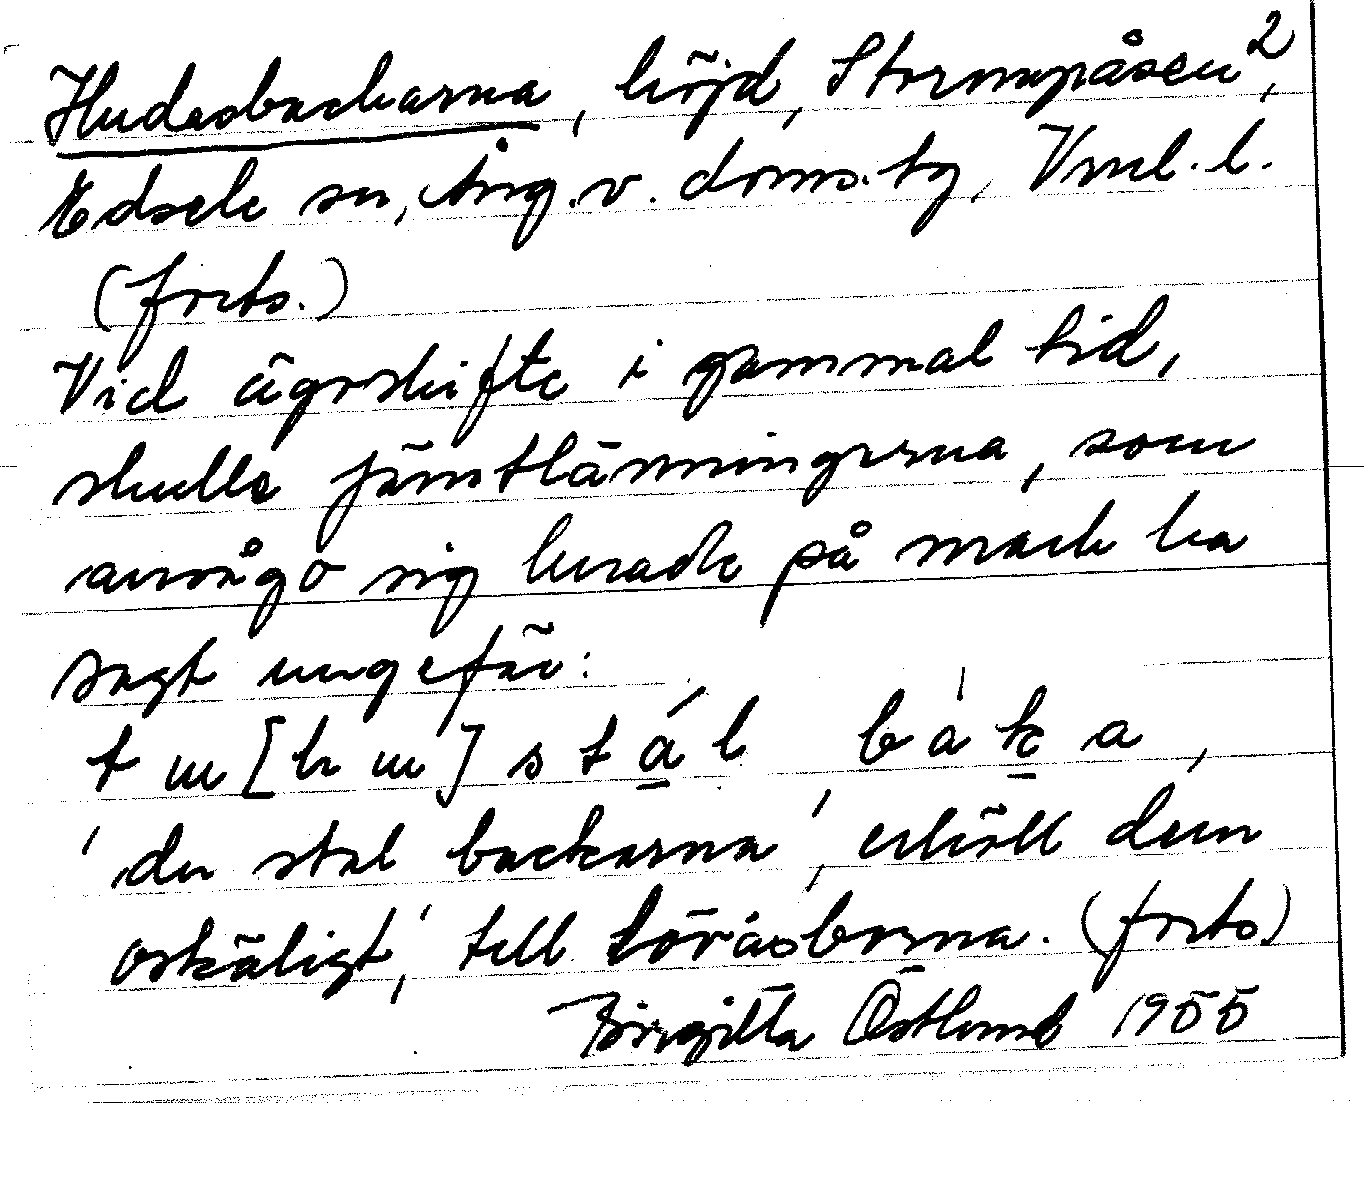 Hudasbackarna, höjd, Stormyråsen²,
Edsele sn, Ång. v. doms. tg, Vnrl. l.
(forts.)
Vid ägoskifte i gammal tid,
skulle jämtlänningerna, som
ansågo sig lurade på mark ha
sagt ungefär:
t u [h u] s t á l b a k a,
'du stal backarna', erhöll dem
oskäligt,' till toråsborna. (forts)
Birgitta Östlund 1955